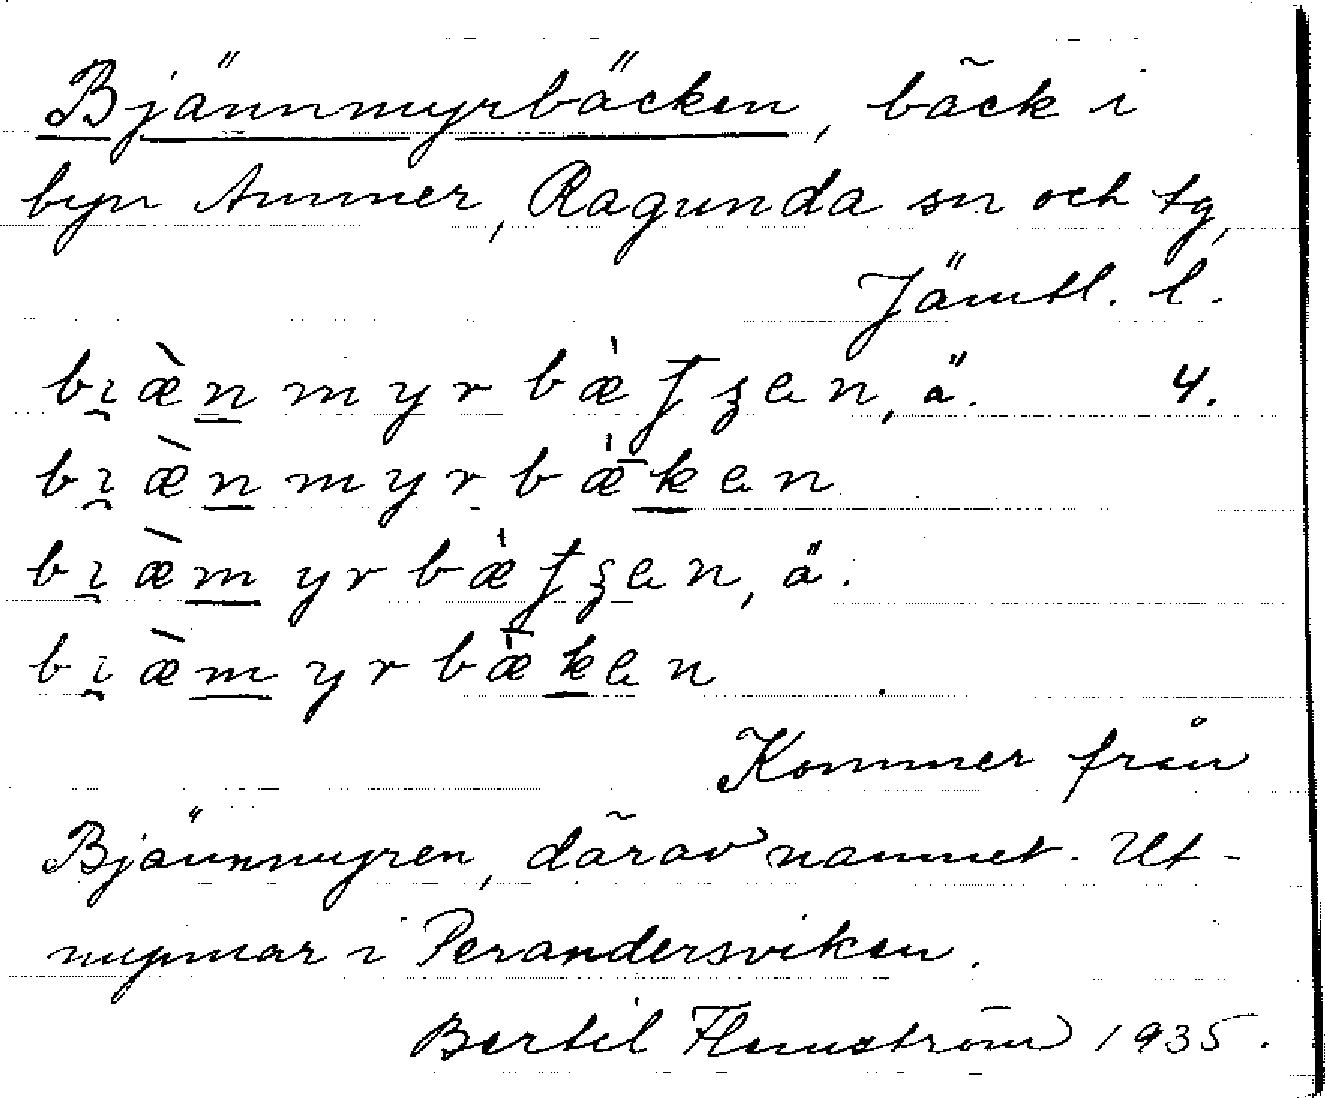 Bjännmyrbäcken, bäck i
byn Ammer, Ragunda sn och tg,
Jämtl. l.
bi̯æ̀n̲myrbæ̀ʈʂen, ä. 4.
bi̯æ̀n̲myrbæ̀k̲en
bi̯æ̀m̲yrbæ̀ʈʂen, ä.
bi̯æ̀m̲yrbæ̀k̲en
Kommer från
Bjännmyren, därav namnet. Ut-
mynnar i Perandersviken.
Bertil Flemström 1935.